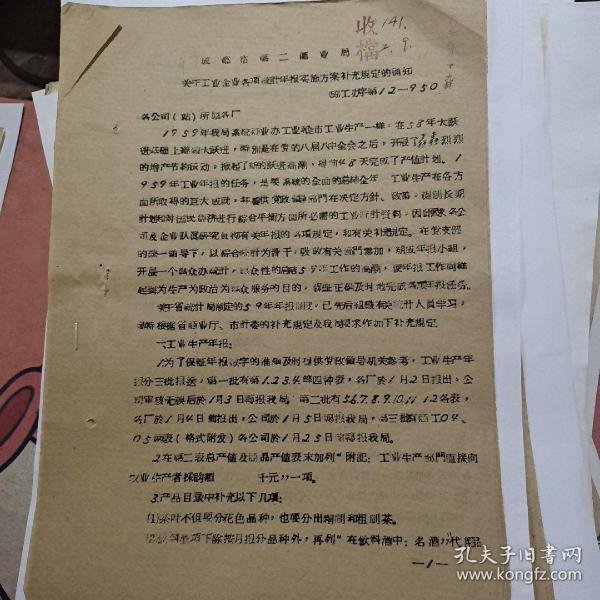 收 141.
檔 2.9.
成都市第二商业局
关于工业企业各项统计年报实施方案补充规定的通知
工业字第12—950
各公司(站)所属各厂
1959年我局系统商业办工业和全市工业生产一样,在58年大跃
进基础上继续大跃进,特别是在党的八届八中全会之后,开展了轰轰烈烈
的增产节约运动,掀起了新的跃进高潮,提前48天完成了产值计划。1
959年工业年报的任务,是要系统的全面的总结全年 工业生产在各方
面所取得的巨大成就,并提供党政领导部门在决定方针、政策,编制长期
计划和对国民经济进行综合平衡方面所必需的工业统计资料,因此要求各公
司及企业认真研究贯彻有关年报的各项规定,和有关补充规定。在党支部
的统一领导下,以综合统计为骨干,吸收有关部门参加,组成年报小组,
开展一个群众办统计,群众性的总结59年工作的高潮,使年报工作同样
起到为生产为政治为群众服务的目的,保证正确及时地完成各项年报任务。
关于省统计局制定的59年年报制度,已先后组织有关统计人员学习,
根据省商业厅、市计委的补充规定及我局要求作如下补充规定
一、工业生产年报:
1.为了保证年报数字的准确及时提供党政领导机关参考,工业生产年
报分三批报送。第一批有第1.2.3.4等四种表,各厂于1月2日报出,公
司审核无误后于1月3日汇报我局。第二批有5.6.7.8.9.10.11 12各表,
各厂于1月4日前报出,公司于1月5日汇报我局,第三批有商工04、
05两表(格式附发)各公司于1月25日前汇报我局。
2.在第二表总产值及商品产值表末加列"附記:工业生产部門直接向
农业生产者採购額 千元"一项。
3.产品目录中补充以下几项:
(1)茶叶不但要分花色品种,也要分出精制和粗制茶。
(2)饮料酒项下除按月报分品种外,再列"在飲料酒中:名酒"代
—1—
孔夫子旧书网
www.kongfz.com